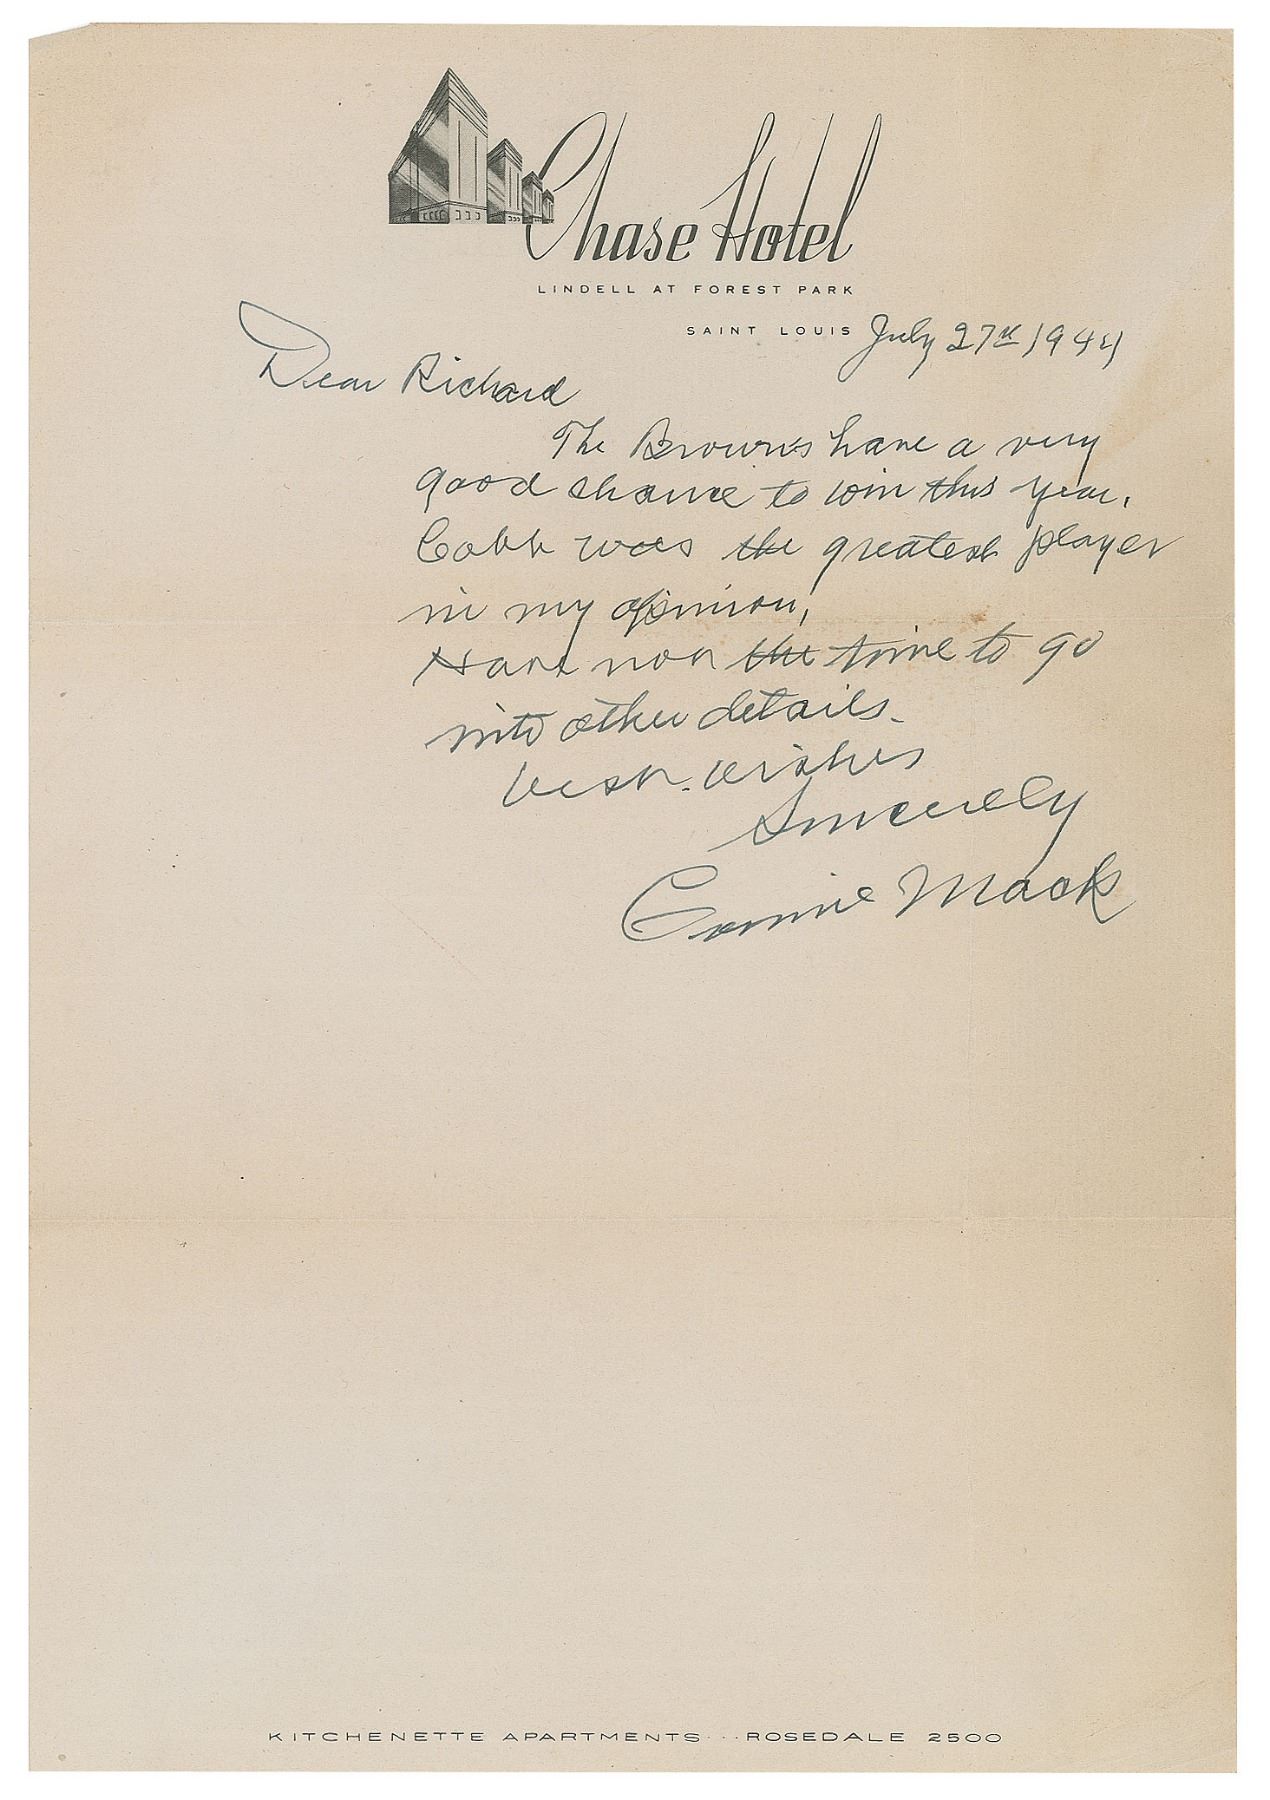 Chase Hotel
LINDELL AT FOREST PARK
SAINT LOUIS July 27th 1944
Dear Richard
The Browns have a very
good chance to win this year.
Cobb was the greatest player
in my opinion,
Have not the time to go
into other details.
best. wishes
Sincerely
Connie Mack
KITCHENETTE APARTMENTS ··· ROSEDALE 2500